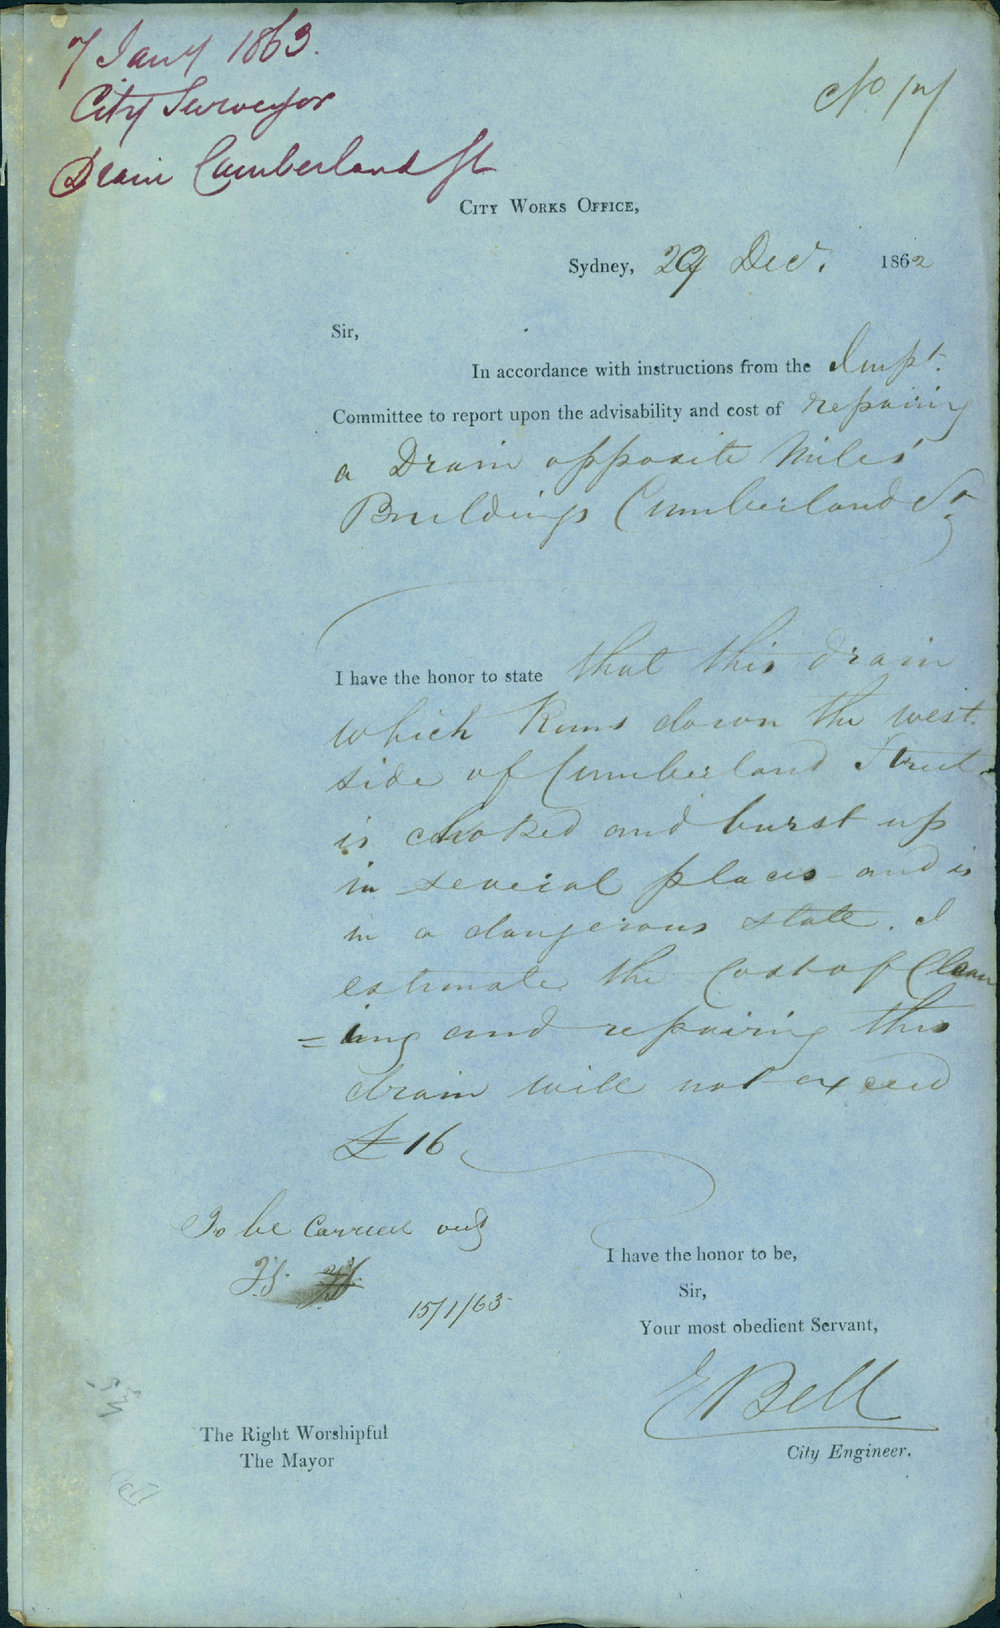 7 Jany 1863.
City Surveyor
Drain Cumberland St
No.
City Works Office,
Sydney, 29 Decr. 1862
Sir,
In accordance with instructions from the Impt.
Committee to report upon the advisability and cost of repairing
a Drain opposite Miles'
Buildings Cumberland St
I have the honor to state that this drain
which Runs down the west
side of Cumberland Street
is choked and burst up
in several places and is
in a dangerous state. I
estimate the Cost of Clean
=ing and repairing this
drain will not exceed
£16
To be Carried out
15/1/63
I have the honor to be,
Sir,
Your most obedient Servant,
E Bell
City Engineer.
The Right Worshipful
The Mayor